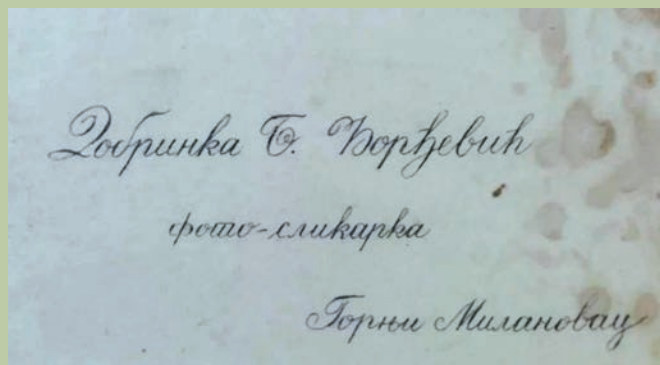 Добринка Б. Ђорђевић
фото-сликарка
Горњи Милановац